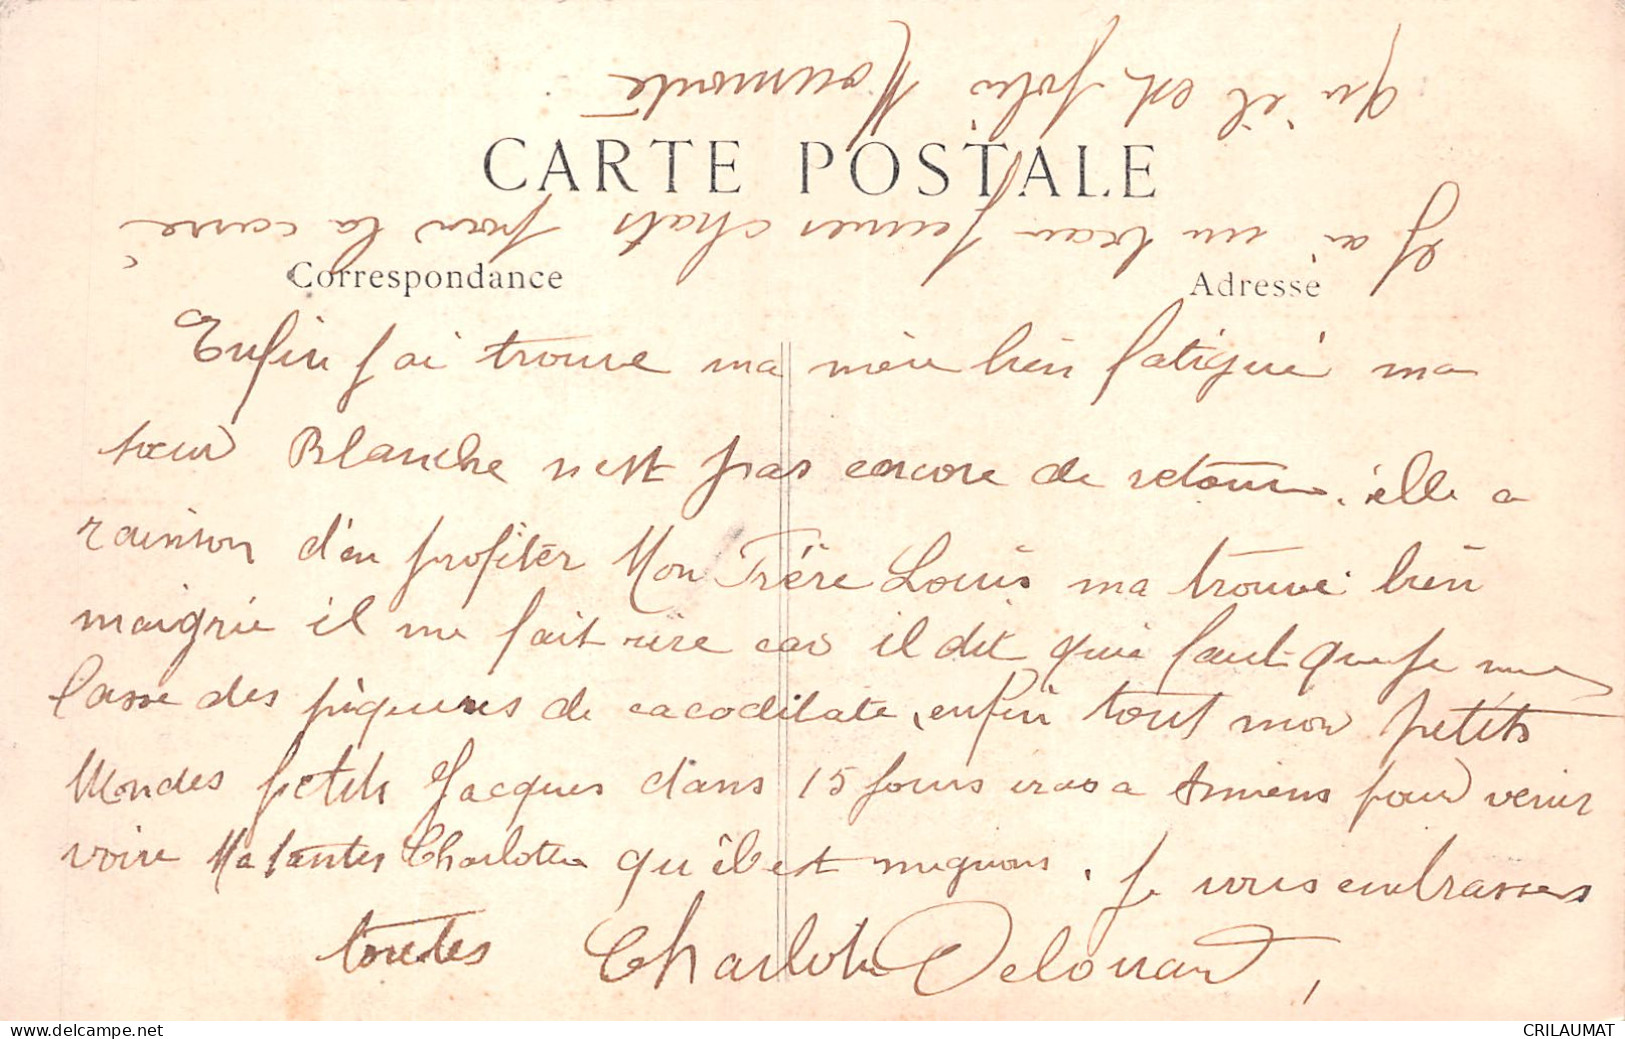 CARTE POSTALE
Correspondance
Adresse
Enfin j'ai trouve ma mère bien fatigué ma
sœur Blanche n'est pas encore de retour. elle a
rainson d'en profiter Mon Frère Louis ma trouve bien
maigrie il me fait rire car il dit qui faut que je me
fasse des piqures de cacodilate, enfin tout mon petits
Mondes petits Jacques dans 15 jours iras a Amiens pour venir
voire Ma tantes Charlotte qu'il est mignons. Je vous embrasses
toutes Charlotte Delouard
J'ai un beau jeunes chats pour la carré
qu'il est joli Moumoute
www.delcampe.net
CRILAUMAT